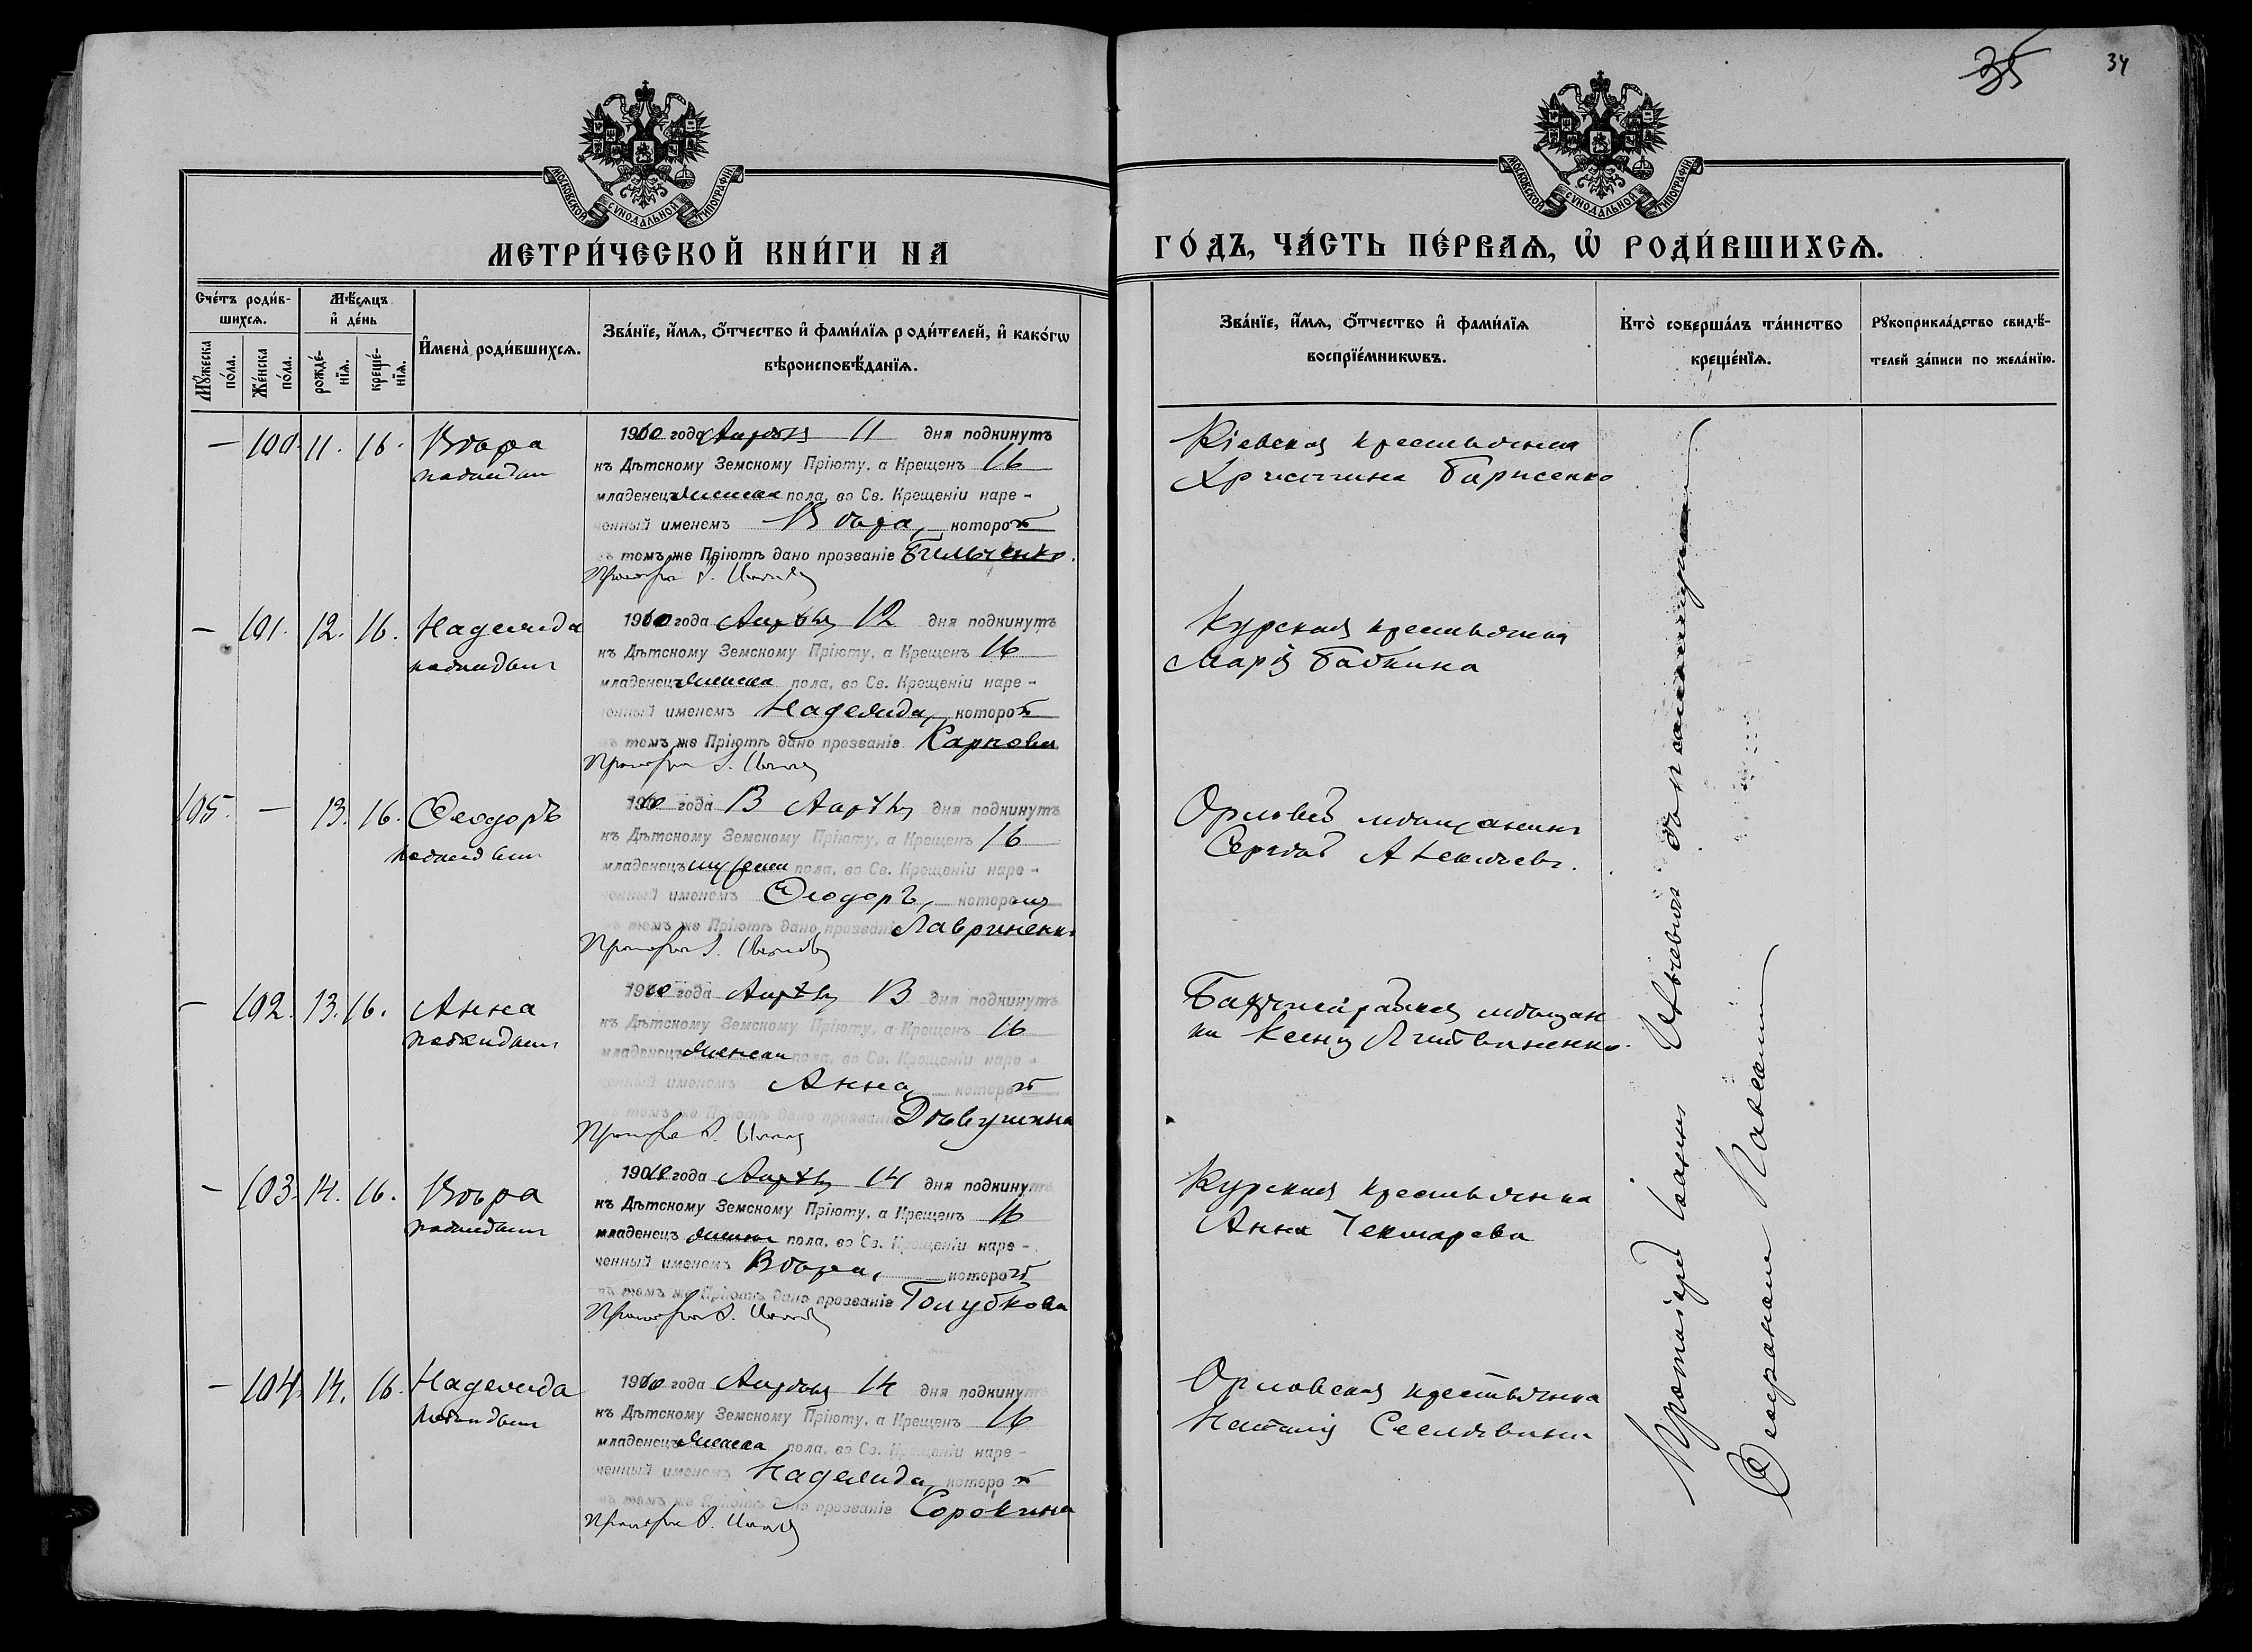 35 34
МОСКОВСКОЙ СУНОДАЛЬНОЙ ТИПОГРАФІИ
МОСКОВСКОЙ СУНОДАЛЬНОЙ ТИПОГРАФІИ
МЕТРИ́ЧЕСКОЙ КНИ́ГИ НА
ГО́ДЪ, ЧА́СТЬ ПЕ́РВАѦ, Ѡ҆ РОДИ́ВШИХСѦ.
Сче́тъ роди́в-
шихсѧ.
Мꙋ́жеска
по́ла.
Же́нска
по́ла.
Мѣ́сѧцъ
и҆ де́нь
рожде́-
нїѧ.
креще́-
нїѧ.
И҆мена̀ роди́вшихсѧ.
Зва́нїе, и҆́мѧ, ѻ҆́тчество и҆ фами́лїѧ роди́телей, и҆ како́гѡ
вѣроисповѣ́данїѧ.
Зва́нїе, и҆́мѧ, ѻ҆́тчество и҆ фами́лїѧ
воспрїе́мникѡвъ.
Кто̀ соверша́лъ та́инство
креще́нїѧ.
Рꙋкоприкла́дство свидѣ́-
телей за́писи по жела́нїю.
— 100. 11. 16. Вѣра
подкидыш
1910 года Апрѣля 11 дня подкинутъ
къ Дѣтскому Земскому Пріюту, а Крещенъ 16
младенецъ женска пола, во Св. Крещеніи наре-
ченный именемъ Вѣра, которой
въ томъ же Пріютѣ дано прозваніе Бильченко.
Кіевская крестьянка
Христина Борисенко
— 101. 12. 16. Надежда
подкидыш
1910 года Апрѣля 12 дня подкинутъ
къ Дѣтскому Земскому Пріюту, а Крещенъ 16
младенецъ женска пола, во Св. Крещеніи наре-
ченный именемъ Надежда, которой
въ томъ же Пріютѣ дано прозваніе Карпова
Курская крестьянка
Марія Бабкина
105. — 13. 16. Ѳеодоръ
подкидыш
1910 года 13 Апрѣля дня подкинутъ
къ Дѣтскому Земскому Пріюту, а Крещенъ 16
младенецъ мужеска пола, во Св. Крещеніи наре-
ченный именемъ Ѳеодоръ, которому
въ томъ же Пріютѣ дано прозваніе Лавриненко
Орловскій мѣщанинъ
Сергѣй
— 102. 13. 16. Анна
подкидыш
1910 года Апрѣля 13 дня подкинутъ
къ Дѣтскому Земскому Пріюту, а Крещенъ 16
младенецъ женска пола, во Св. Крещеніи наре-
ченный именемъ Анна которой
въ томъ же Пріютѣ дано прозваніе Дѣвушкина
Бахчисарайская мѣщан
ка Ксенія Литвиненко.
— 103. 14. 16. Вѣра
подкидыш
1910 года Апрѣля 14 дня подкинутъ
къ Дѣтскому Земскому Пріюту, а Крещенъ 16
младенецъ женска пола, во Св. Крещеніи наре-
ченный именемъ Вѣра, которой
въ томъ же Пріютѣ дано прозваніе Голубкова
Курская крестьянка
Анна Чекмарева
— 104. 14. 16. Надежда
подкидыш
1910 года Апрѣля 14 дня подкинутъ
къ Дѣтскому Земскому Пріюту, а Крещенъ 16
младенецъ женска пола, во Св. Крещеніи наре-
ченный именемъ Надежда, которой
въ томъ же Пріютѣ дано прозваніе Сорокина
Орловская крестьянка
Наталія
Протоіерей Іоаннъ